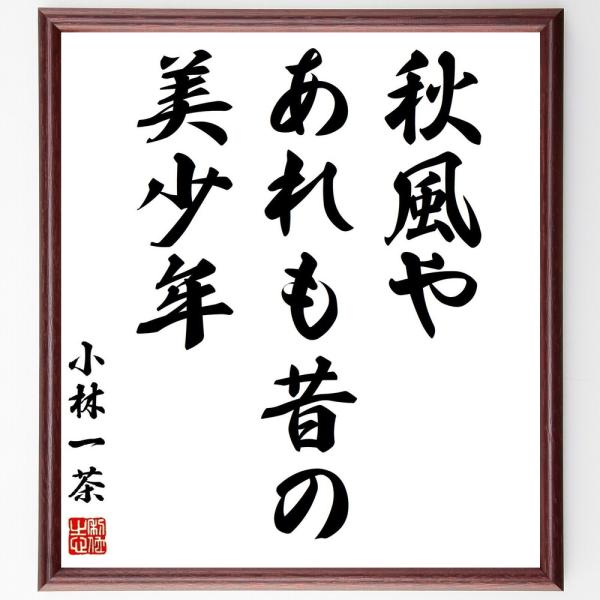 秋風や
あれも昔の
美少年
小林一茶